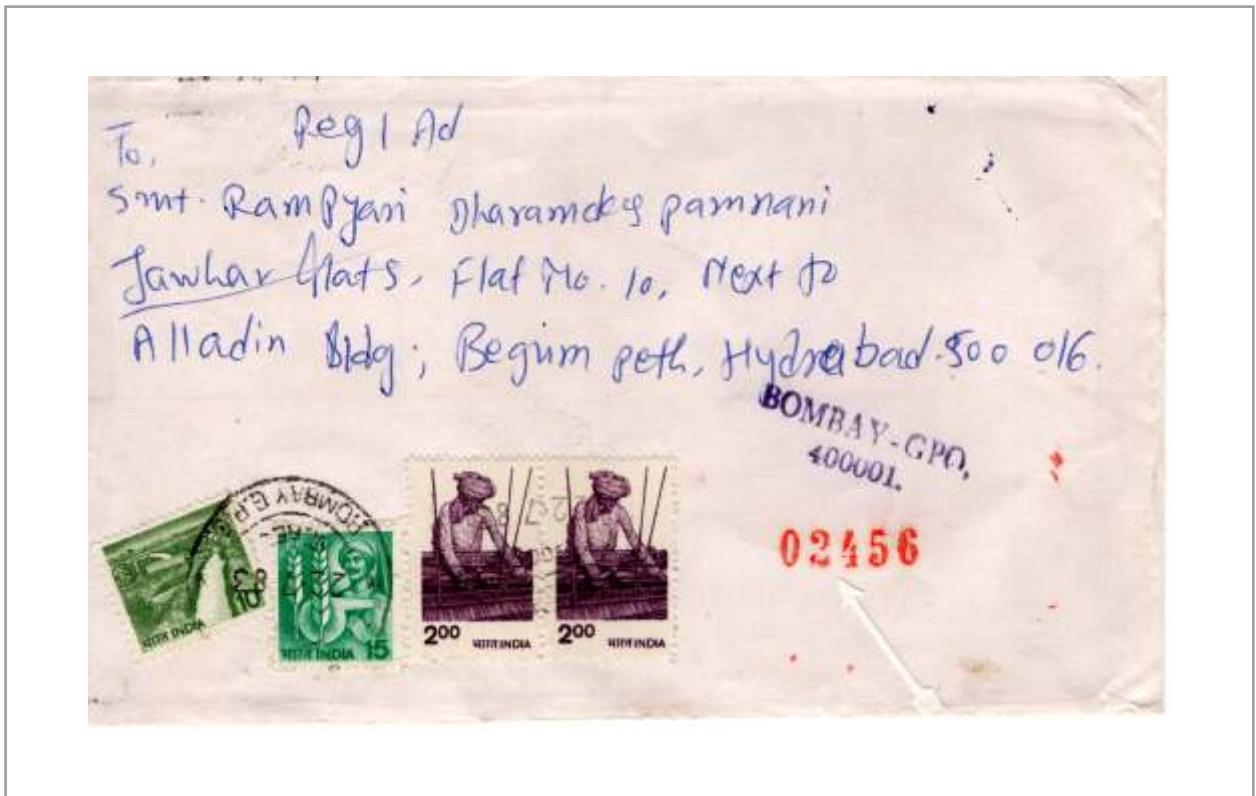 Reg / Ad
To,
Smt. Rampyari Dharamdas pamnani
Jawhar flats, Flat No. 10, Next to
Alladin Bldg; Begum peth, Hydrabad. 500 016.
BOMBAY-GPO,
400001.
02456
BOMBAY G.P.O.
भारत INDIA
भारत INDIA 15
2.00 भारत INDIA
2.00 भारत INDIA